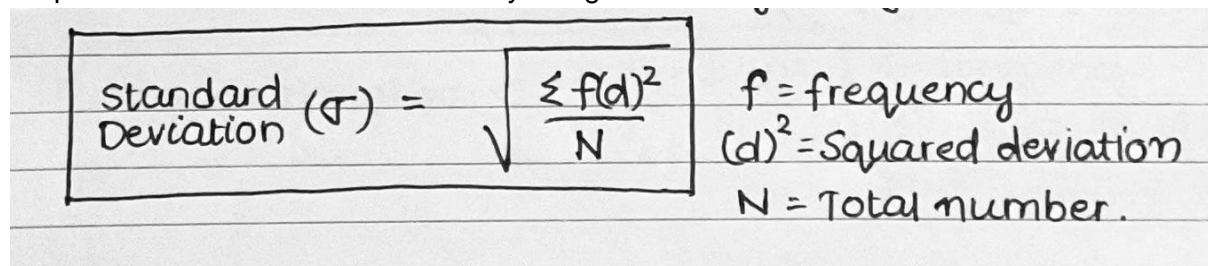 Standard Deviation (σ) = √(Σ f(d)² / N)
f = frequency
(d)² = Squared deviation
N = Total number.